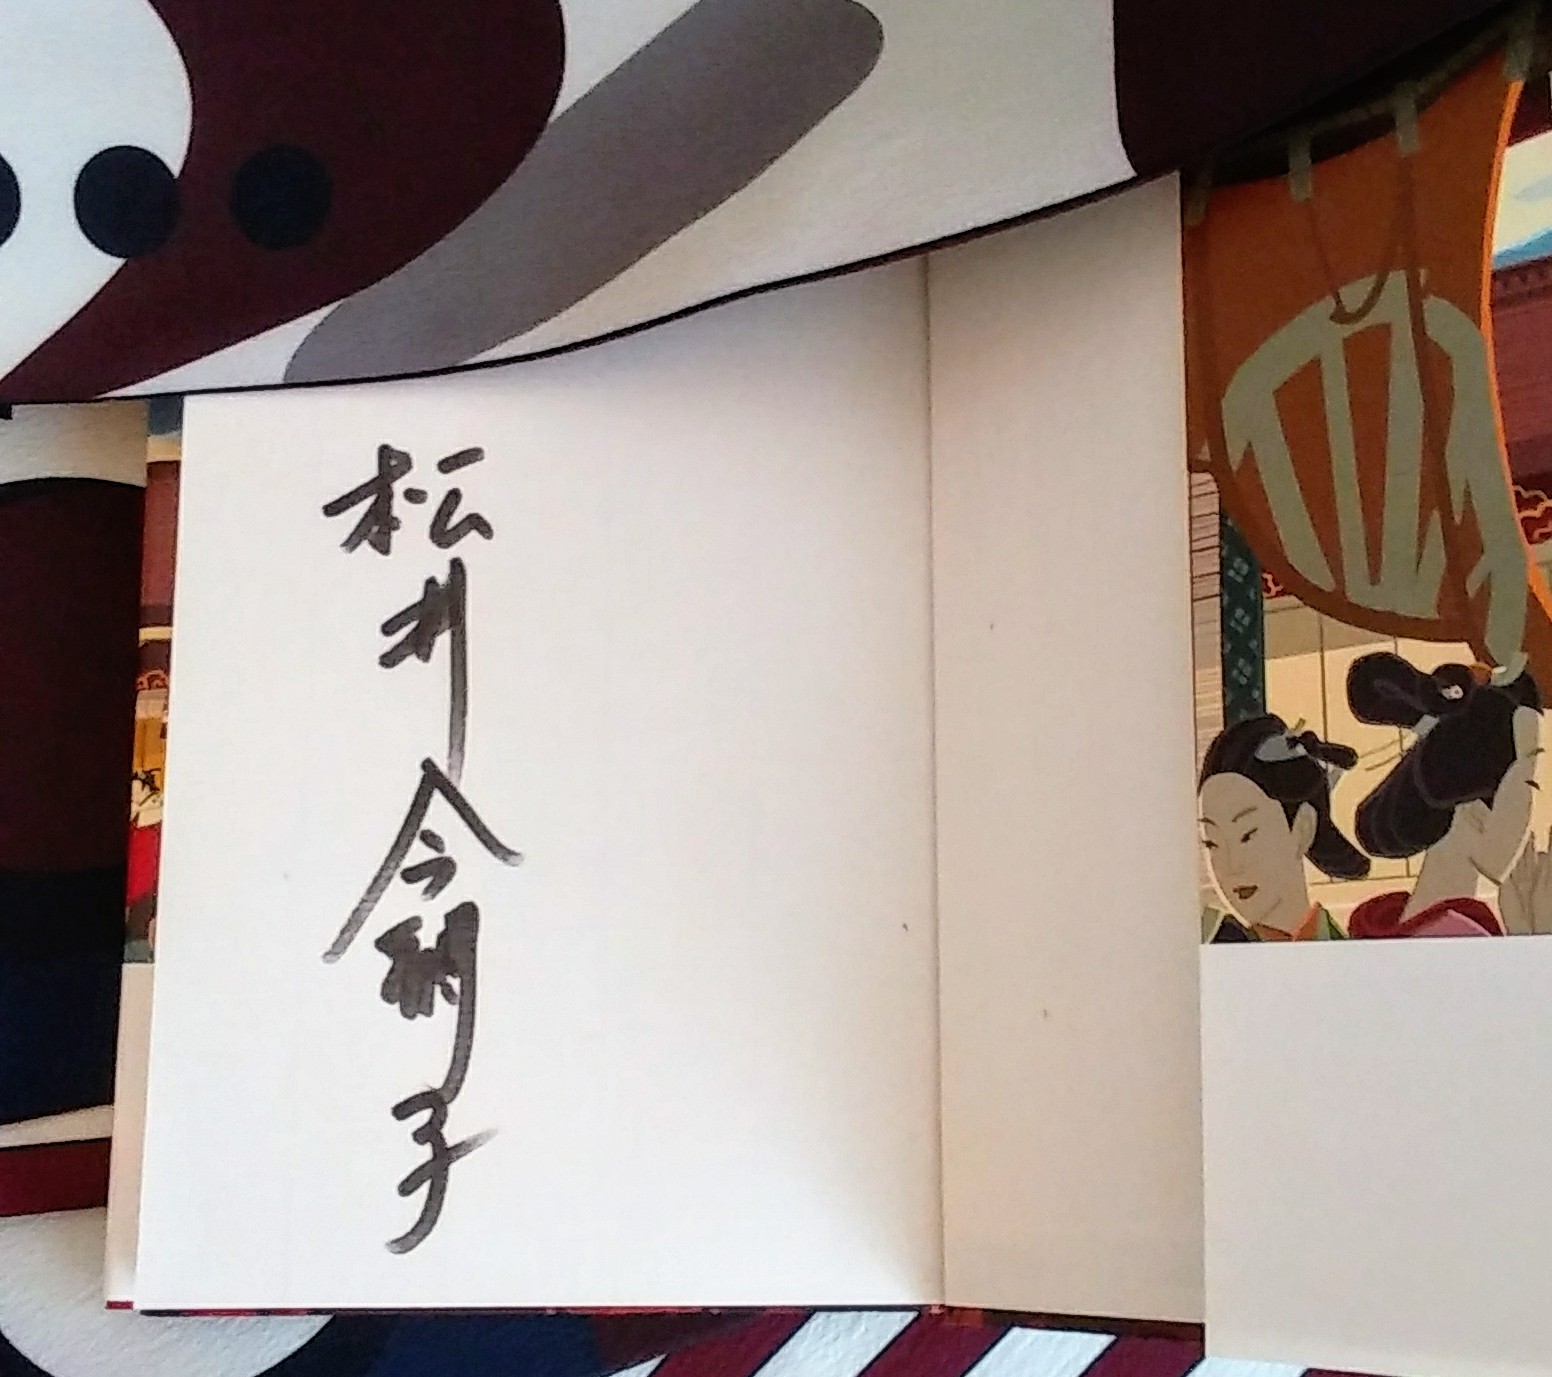 松井今朝子